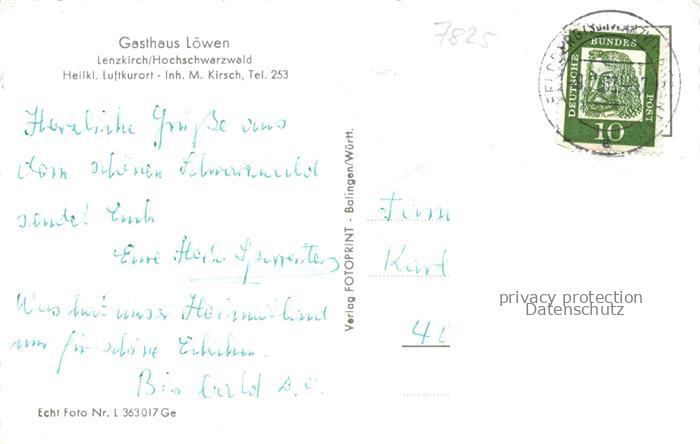 7825
Gasthaus Löwen
Lenzkirch/Hochschwarzwald
Heilkl. Luftkurort - Inh. M. Kirsch, Tel. 253
DEUTSCHE BUNDES POST
10
Herzliche Grüße aus
dem schönen Schwarzwald
sendet Euch
Eure
Was hat unser Heimatland
nur für schöne
Bis bald
Verlag FOTOPRINT - Balingen/Württ.
Firm
Karl
privacy protection
Datenschutz
Echt Foto Nr. L 363017 Ge